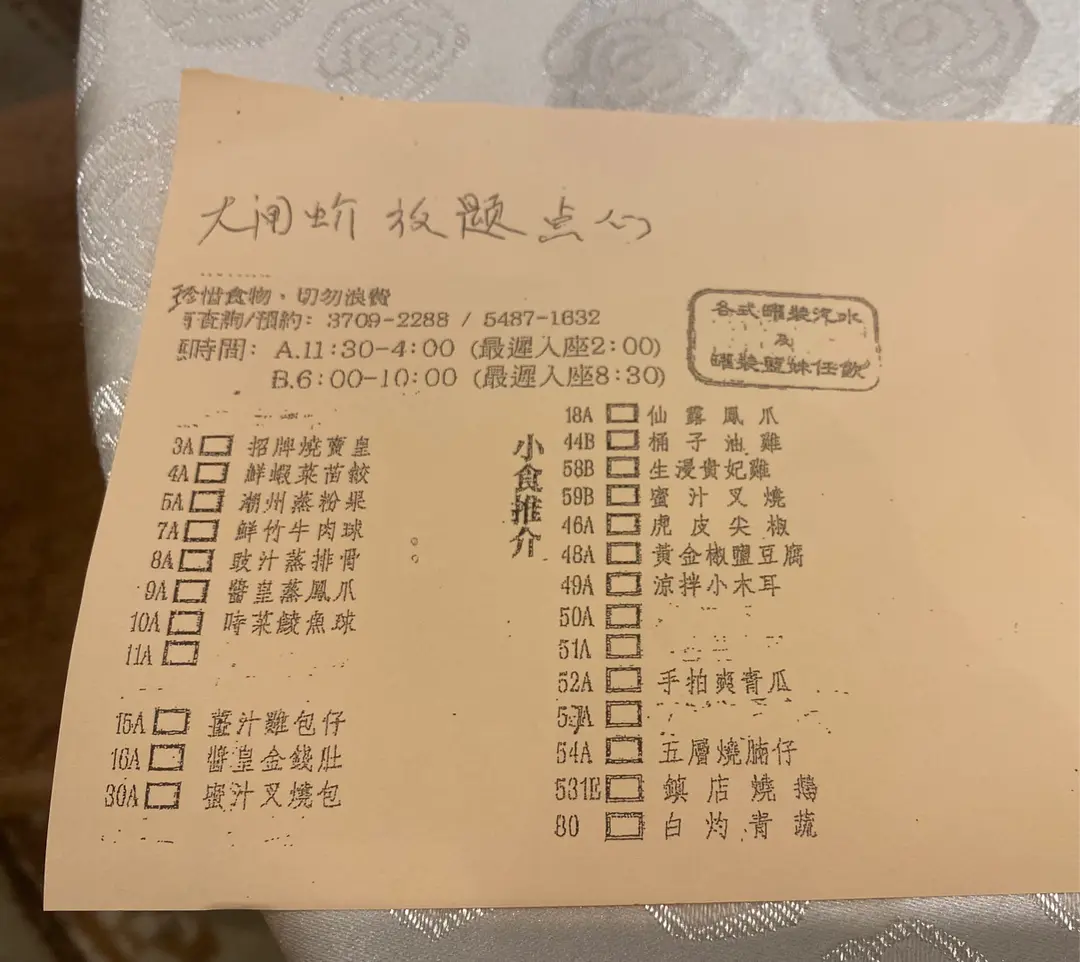 大闸蚧放题点心
珍惜食物、切勿浪費
查詢/預約: 3709-2288 / 5487-1632
時間: A.11:30-4:00 (最遲入座2:00)
B.6:00-10:00 (最遲入座8:30)
各式罐裝汽水
及
罐裝藍妹任飲
3A 招牌燒賣皇
4A 鮮蝦菜苗餃
5A 潮州蒸粉果
7A 鮮竹牛肉球
8A 豉汁蒸排骨
9A 醬皇蒸鳳爪
10A 時菜鯪魚球
11A
15A 薑汁雞包仔
16A 醬皇金錢肚
30A 蜜汁叉燒包
小食推介
18A 仙露鳳爪
44B 桶子油雞
58B 生浸貴妃雞
59B 蜜汁叉燒
46A 虎皮尖椒
48A 黃金椒鹽豆腐
49A 涼拌小木耳
50A
51A
52A 手拍爽青瓜
54A 五層燒腩仔
531E 鎮店燒鵝
80 白灼青蔬